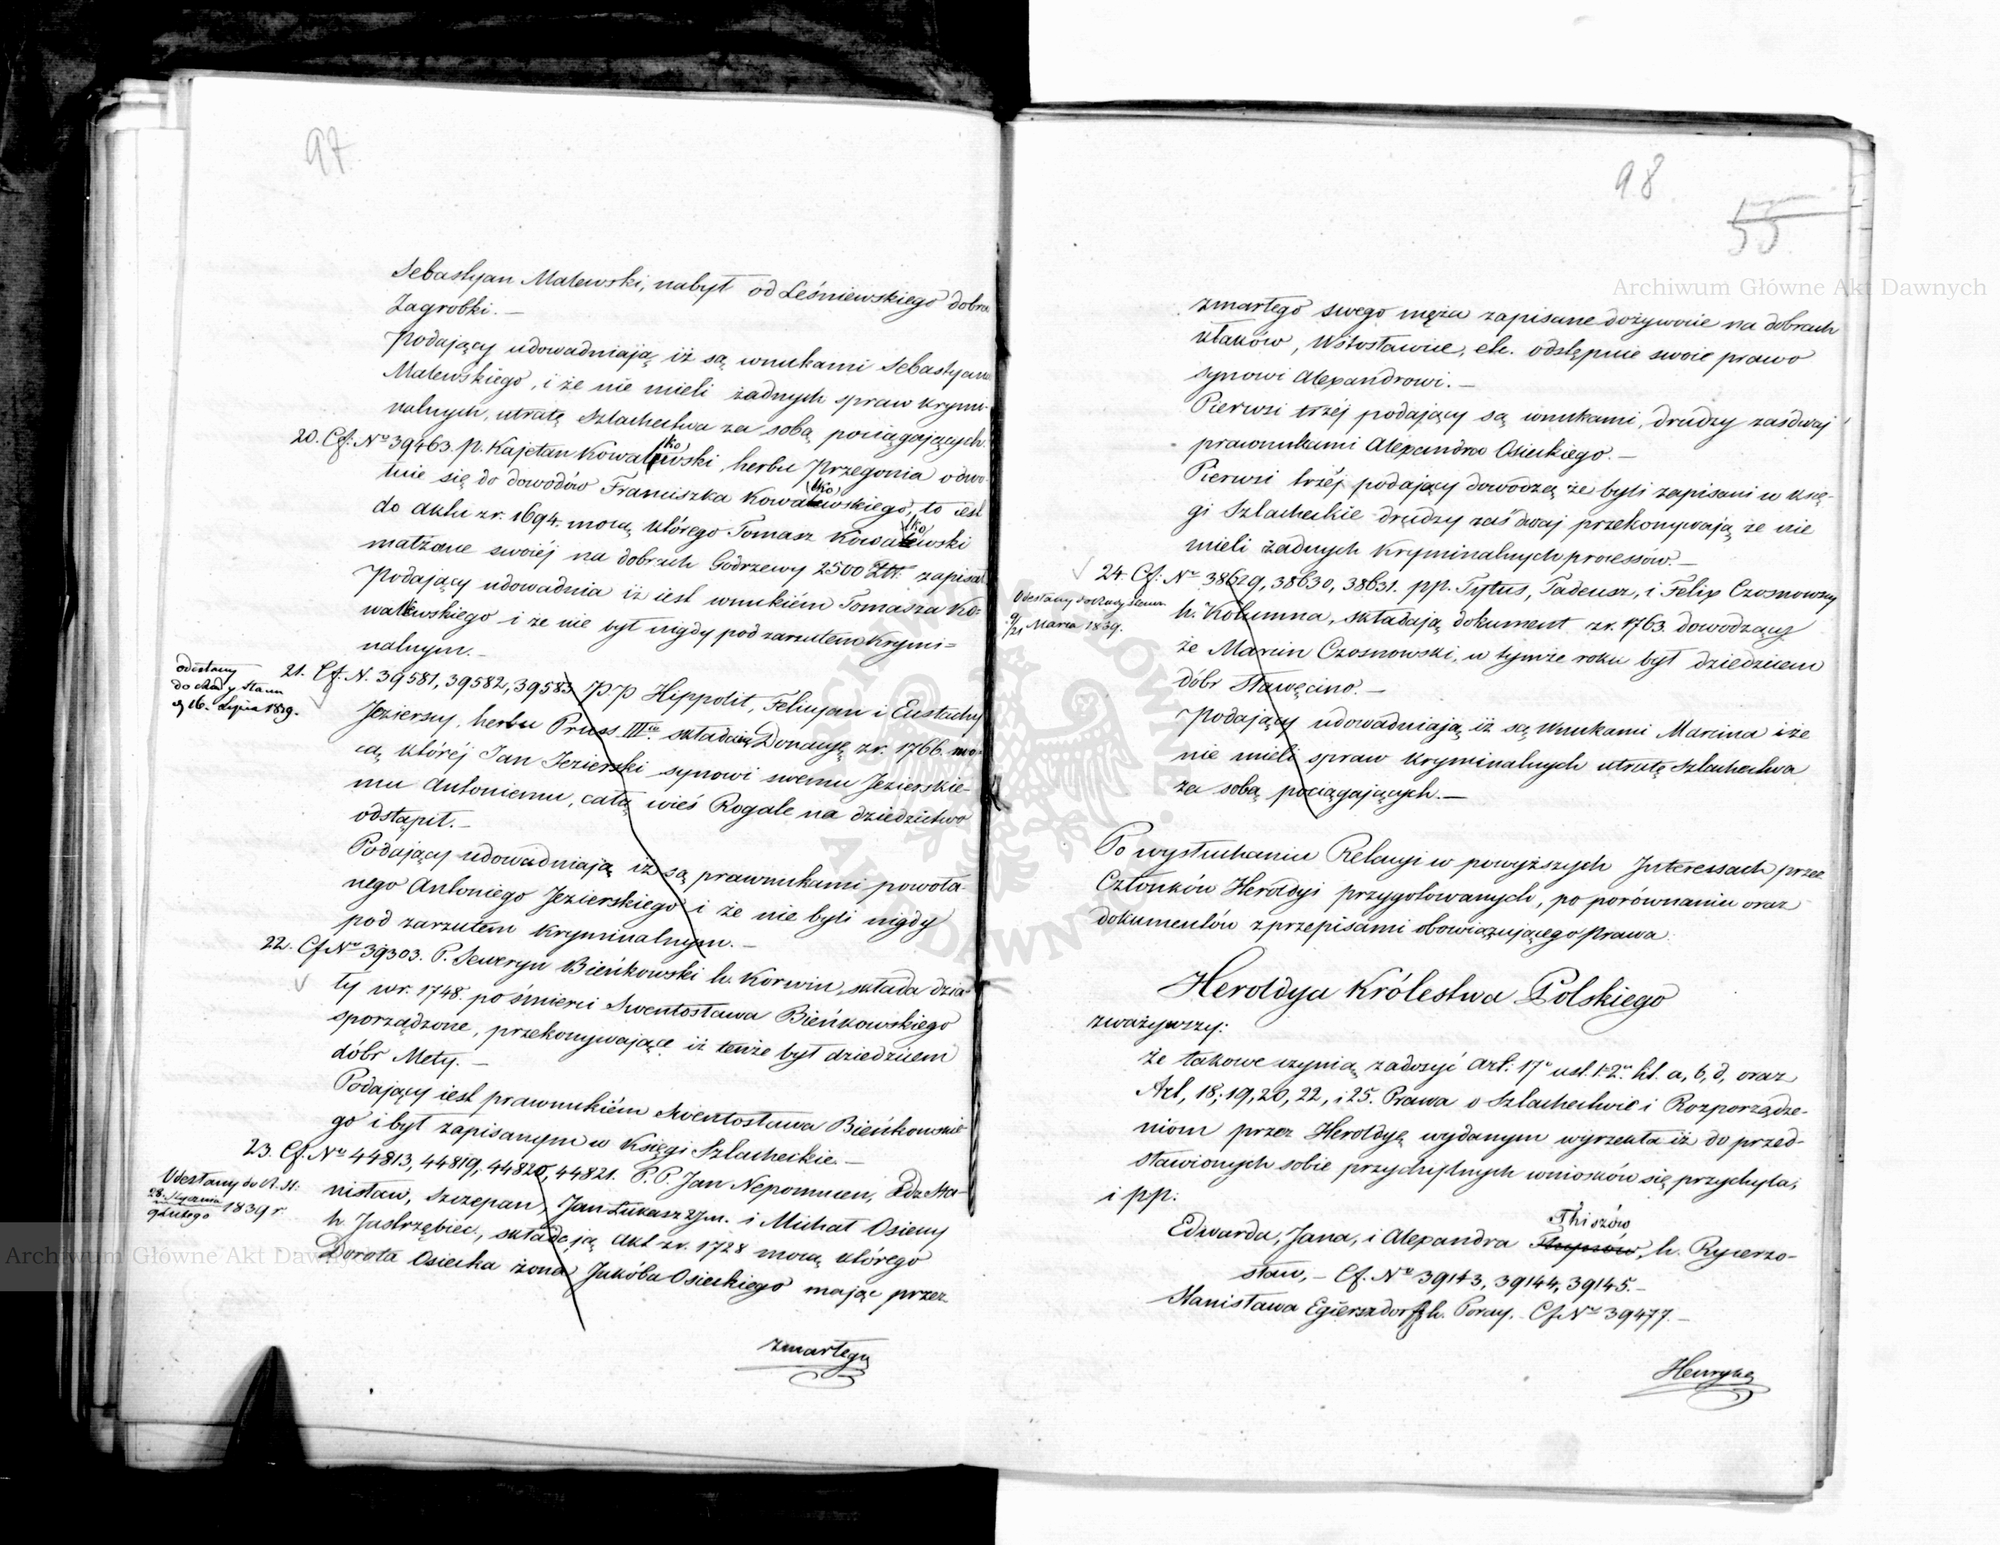 97
Sebastyan Malewski, nabył od Leśniewskiego dobra
Zagrobki. —
Podający udowadniają iż są wnukami Sebastyana
Malewskiego, i że nie mieli żadnych spraw krymi-
nalnych, utratę Szlachectwa za sobą pociągających.
20. Cf: Nro 39463. P. Kajetan Kowalewski, herbu Przegonia odwo-
łuie się do dowodów Franciszka Kowalewskiego, to iest
do aktu zr. 1694. mocą którego Tomasz Kowalewski
małżonce swoiéj na dobrach Godrzewy 2500 Złt. zapisał
Podający udowadnia iż iest wnukiém Tomasza Ko-
walewskiego i że nie był nigdy pod zarzutem Krymi=
nalnym. —
odesłany
do Rady Stanu
d 16. Lipca 1839.
21. Cf. N. 39581, 39582, 39583 P.P Hippolit, Felicyan i Eustachy
Jezierscy, herbu Pruss IIIcio składaią Donacyę zr. 1766. mo-
cą któréj Jan Jezierski synowi swemu Jezierskie-
mu Antoniemu, całą wieś Rogale na dziedzictwo
odstąpił. —
Podający udowadniają iż są prawnukami powoła-
nego Antoniego Jezierskiego i że nie byli nigdy
pod zarzutem Kryminalnym. —
22. Cf Nro 39303. P. Seweryn Bieńkowski h. Korwin, składa dzia-
ły w r. 1748. po śmierci Swentosława Bieńkowskiego
sporządzone, przekonywające iż tenże był dziedzicem
dóbr Mety. —
Podający iest prawnukiém Swentosława Bieńkowskie-
go i był zapisanym w Księgi Szlacheckie. —
23. Cf. Nro 44813, 44819, 44820, 44821. P.P. Jan Nepomucen, Zdzisła-
nisław, Szczepan, Jan Łukasz 2im. i Michał Osieccy
h. Jastrzębiec, składają Akt zr. 1728 mocą którego
Dorota Osiecka żona Jakóba Osieckiego mając przez
Odesłany do R. St:
28. Stycznia
9 Lutego 1839 r.
zmarłego
98
55
zmarłego swego męża zapisane dożywocie na dobrach
Ułaków, Wstosławice, etc. odstępuie swoie prawo
synowi Alexandrowi. —
Pierwsi trzéj podający są wnukami, drudzy zaś dwaj
prawnukami Alexandra Osieckiego. —
Pierwsi trzéj podający dowodzą że byli zapisani w Księ-
gi Szlacheckie drudzy zaś dwaj przekonywają że nie
mieli żadnych Kryminalnych processów. —
24. Cf: Nro 38629, 38630, 38631. pp. Tytus, Tadeusz, i Felix Czosnowscy
h. Kolumna, składają dokument zr. 1763. dowodzący
że Marcin Czosnowski, w tymże roku był dziedzicem
dóbr Sławęcino. —
Odesłany do Rady Stanu.
9/21 Marca 1839.
Podający udowadniają iż są Wnukami Marcina i że
nie mieli spraw kryminalnych utratę Szlachectwa
za sobą pociągających. —
Po wysłuchaniu Relacyi w powyższych Interessach przez
Członków Heroldyi przygotowanych, po porównaniu oraz
dokumentów z przepisami obowiązującego Prawa
Heroldya Królestwa Polskiego
zważywszy:
że takowe czynią zadosyć Art: 17o ust. 1. 2o lit. a, b, d, oraz
Art, 18, 19, 20, 22, i 25. Prawa o Szlachectwie i Rozporządze-
niom przez Heroldyę wydanym wyrzekła iż do przed-
stawionych sobie przychylnych wniosków się przychyla,
i pp:
Thiszów
Edwarda, Jana, i Alexandra, h. Rycerzo-
staw, — Cf. Nro 39143, 39144, 39145. —
Stanisława Egiersdorff h. Poray. Cf. Nro 39477. —
Henryka
Archiwum Główne Akt Dawnych
Archiwum Główne Akt Dawnych
ARCHIWUM GŁÓWNE AKT DAWNYCH